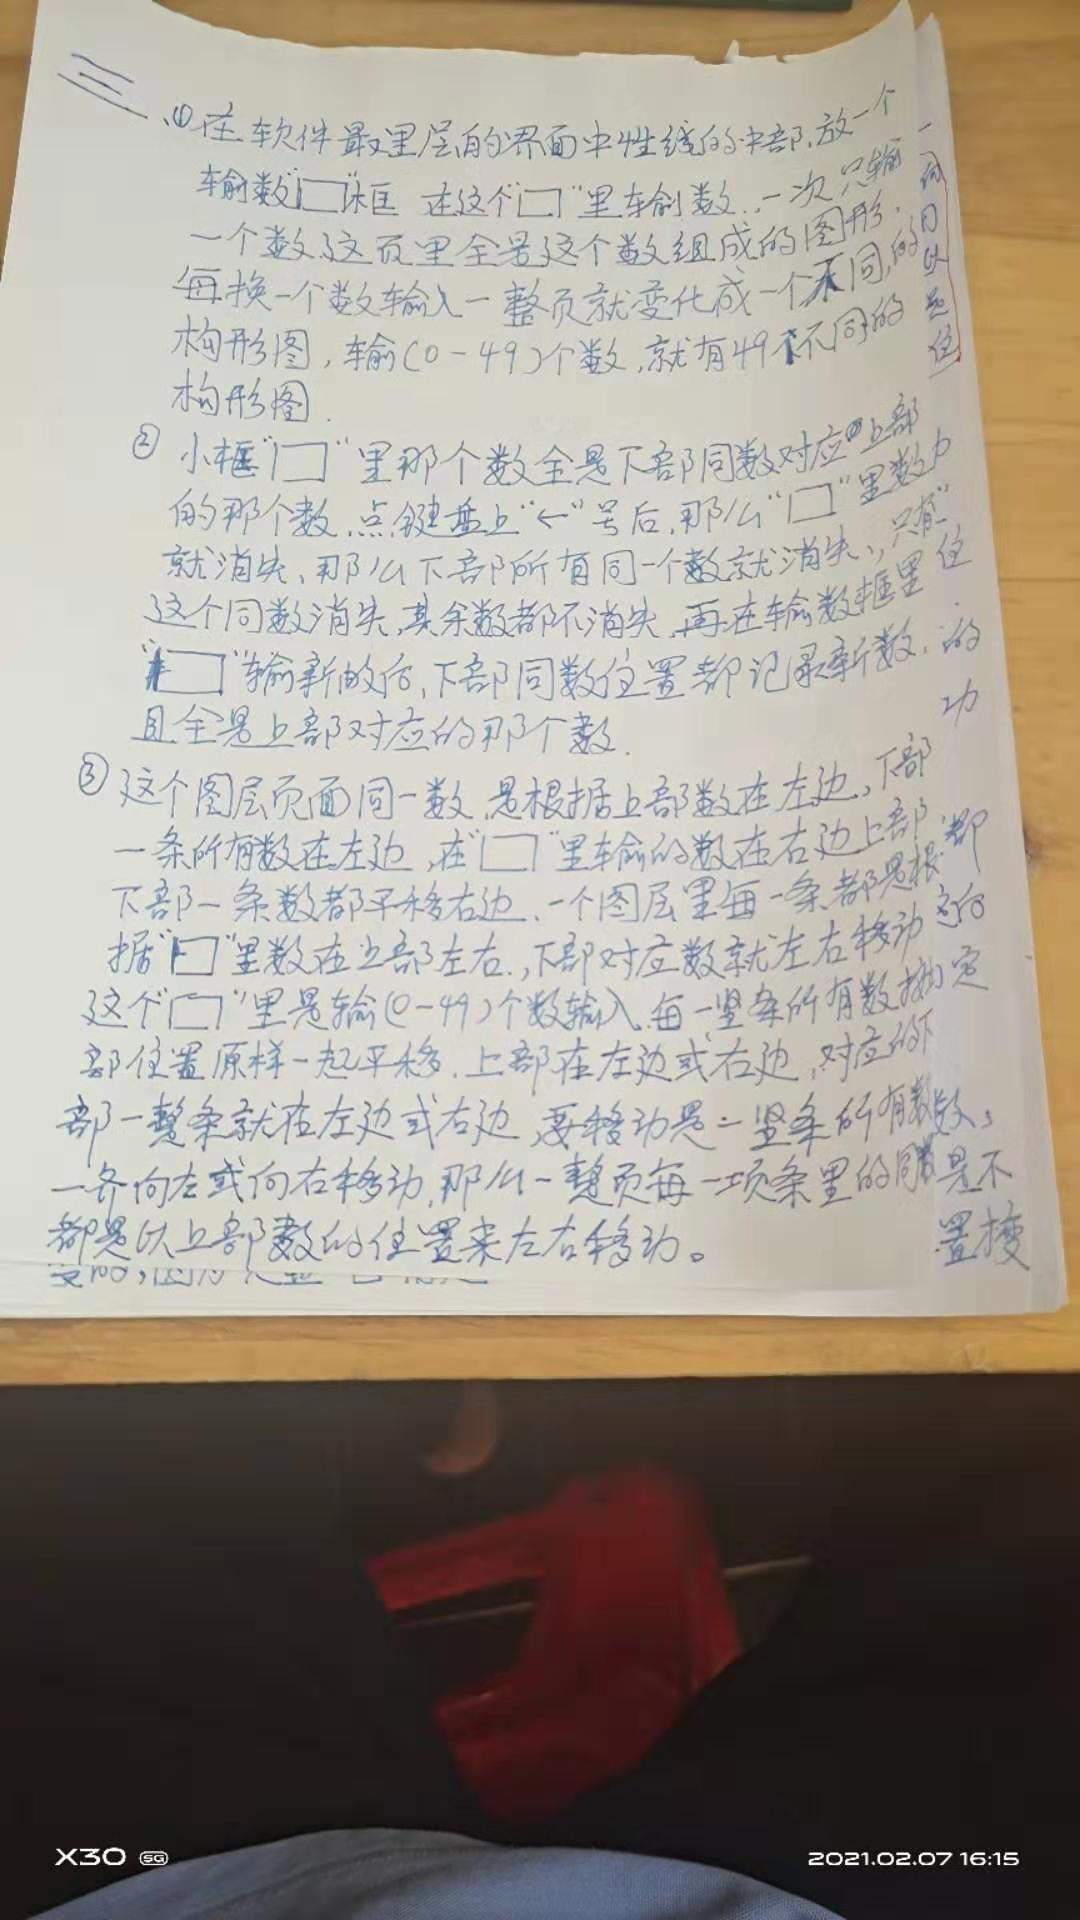 三、①在软件最里层的界面中性线的中部,放一个
输数"□"框 在这个"□"里输数,一次只输
一个数,这页里全是这个数组成的图形,
每换一个数输入一整页就变化成一个不同的
构形图,输(0-49)个数,就有49个不同的
构形图.
② 小框"□"里那个数全是下部同数对应上部
的那个数,点键盘上"←"号后,那么"□"里数
就消失、那么下部所有同一个数就消失,只有
这个同数消失,其余数都不消失,再在输数框里
"□"输新的后,下部同数位置都记录新数,
且全是上部对应的那个数.
③ 这个图层页面同一数,是根据上部数在左边,下部
一条所有数在左边,在"□"里输的数在右边上部
下部一条数都平移右边、一个图层里每一条都是根
据"□"里数在上部左右,下部对应数就左右移动
这个"□"里是输(0-49)个数输入,每一竖条所有数
部位置原样一起平移.上部在左边或右边,对应的下
部一整条就在左边或右边,要移动是一竖条所有数,
一齐向左或向右移动,那么一整页每一项条里的同数
都是以上部数的位置来左右移动。
是不
置换
X30 5G
2021.02.07 16:15